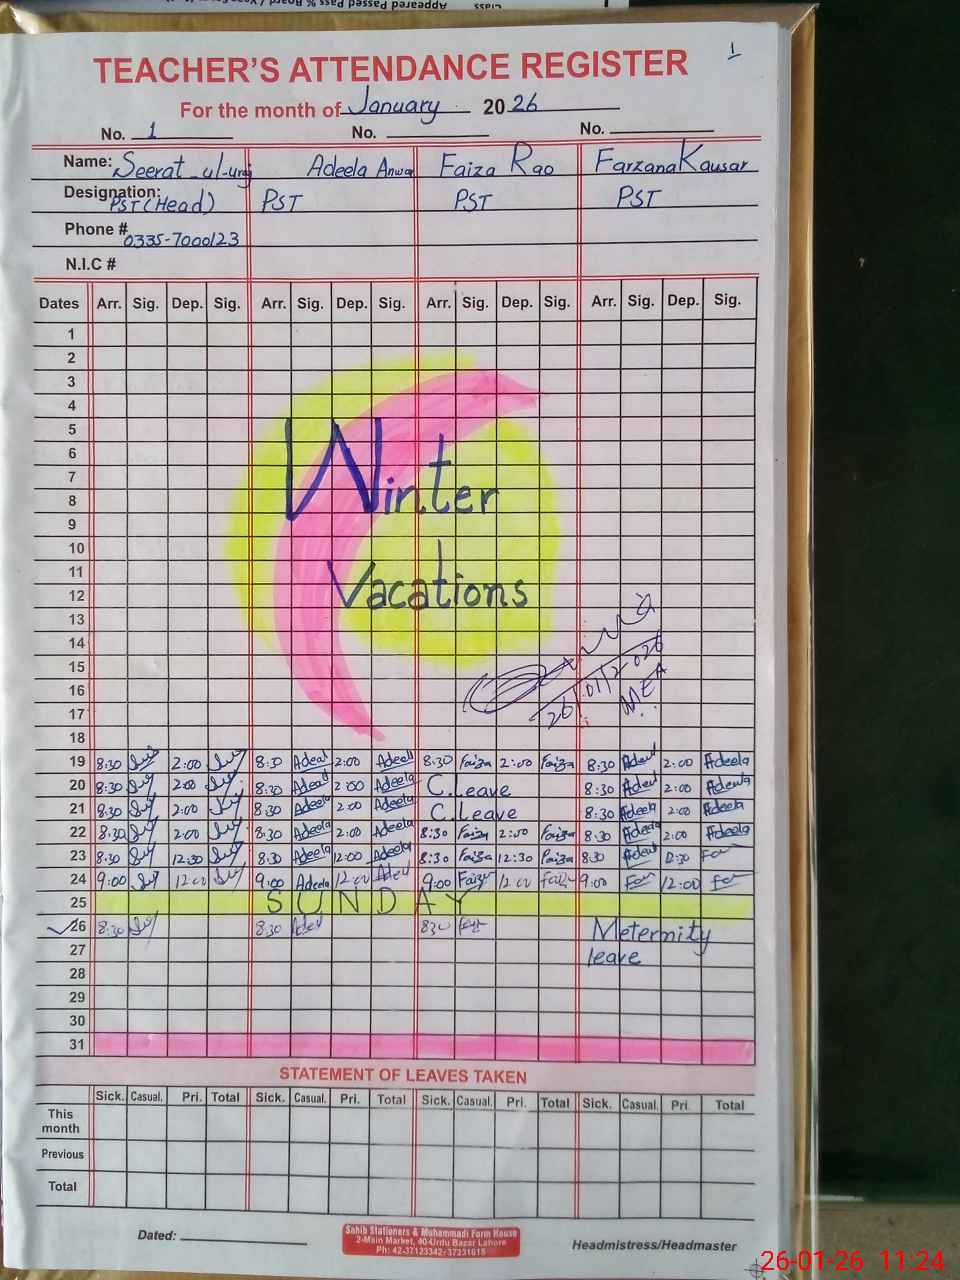 Class Appeared Passed Pass % Board /
1
TEACHER'S ATTENDANCE REGISTER
For the month of January 2026
No. 1 No. No.
Name: Seerat-ul- Adeela Anwar Faiza Rao Farzana Kausar
Designation: PST (Head) PST PST PST
Phone # 0335-7000123
N.I.C #
Dates Arr. Sig. Dep. Sig. Arr. Sig. Dep. Sig. Arr. Sig. Dep. Sig. Arr. Sig. Dep. Sig.
1
2
3
4
5
6
7
8
9
10
11
12
13
14
15
16
17
18
Winter
Vacations
26/01/2026
MEA
19 8:30 2:00 8:30 Adeel 2:00 Adeel 8:30 Faiza 2:00 Faiza 8:30 Adeel 2:00 Adeela
20 8:30 2:00 8:30 Adeel 2:00 Adeela C.Leave 8:30 Adeel 2:00 Adeela
21 8:30 2:00 8:30 Adeela 2:00 Adeela C.Leave 8:30 Adeela 2:00 Adeela
22 8:30 2:00 8:30 Adeela 2:00 Adeela 8:30 Faiza 2:00 Faiza 8:30 Adeela 2:00 Adeela
23 8:30 12:30 8:30 Adeela 12:00 Adeela 8:30 Faiza 12:30 Faiza 8:30 Adeel 12:30
24 9:00 12:00 9:00 Adeela 12:00 Adeel 9:00 Faiza 12:00 Faiza 9:00 12:00
25 SUNDAY
26 8:30 8:30 Adeel 830 Meternity
27 leave
28
29
30
31
STATEMENT OF LEAVES TAKEN
Sick. Casual. Pri. Total Sick. Casual. Pri. Total Sick. Casual. Pri. Total Sick. Casual. Pri. Total
This month
Previous
Total
Dated:
Sahib Stationers & Muhammadi Farm House
2-Main Market, 40-Urdu Bazar Lahore
Ph: 42-37123342, 37231615
Headmistress/Headmaster
26-01-26 11:24